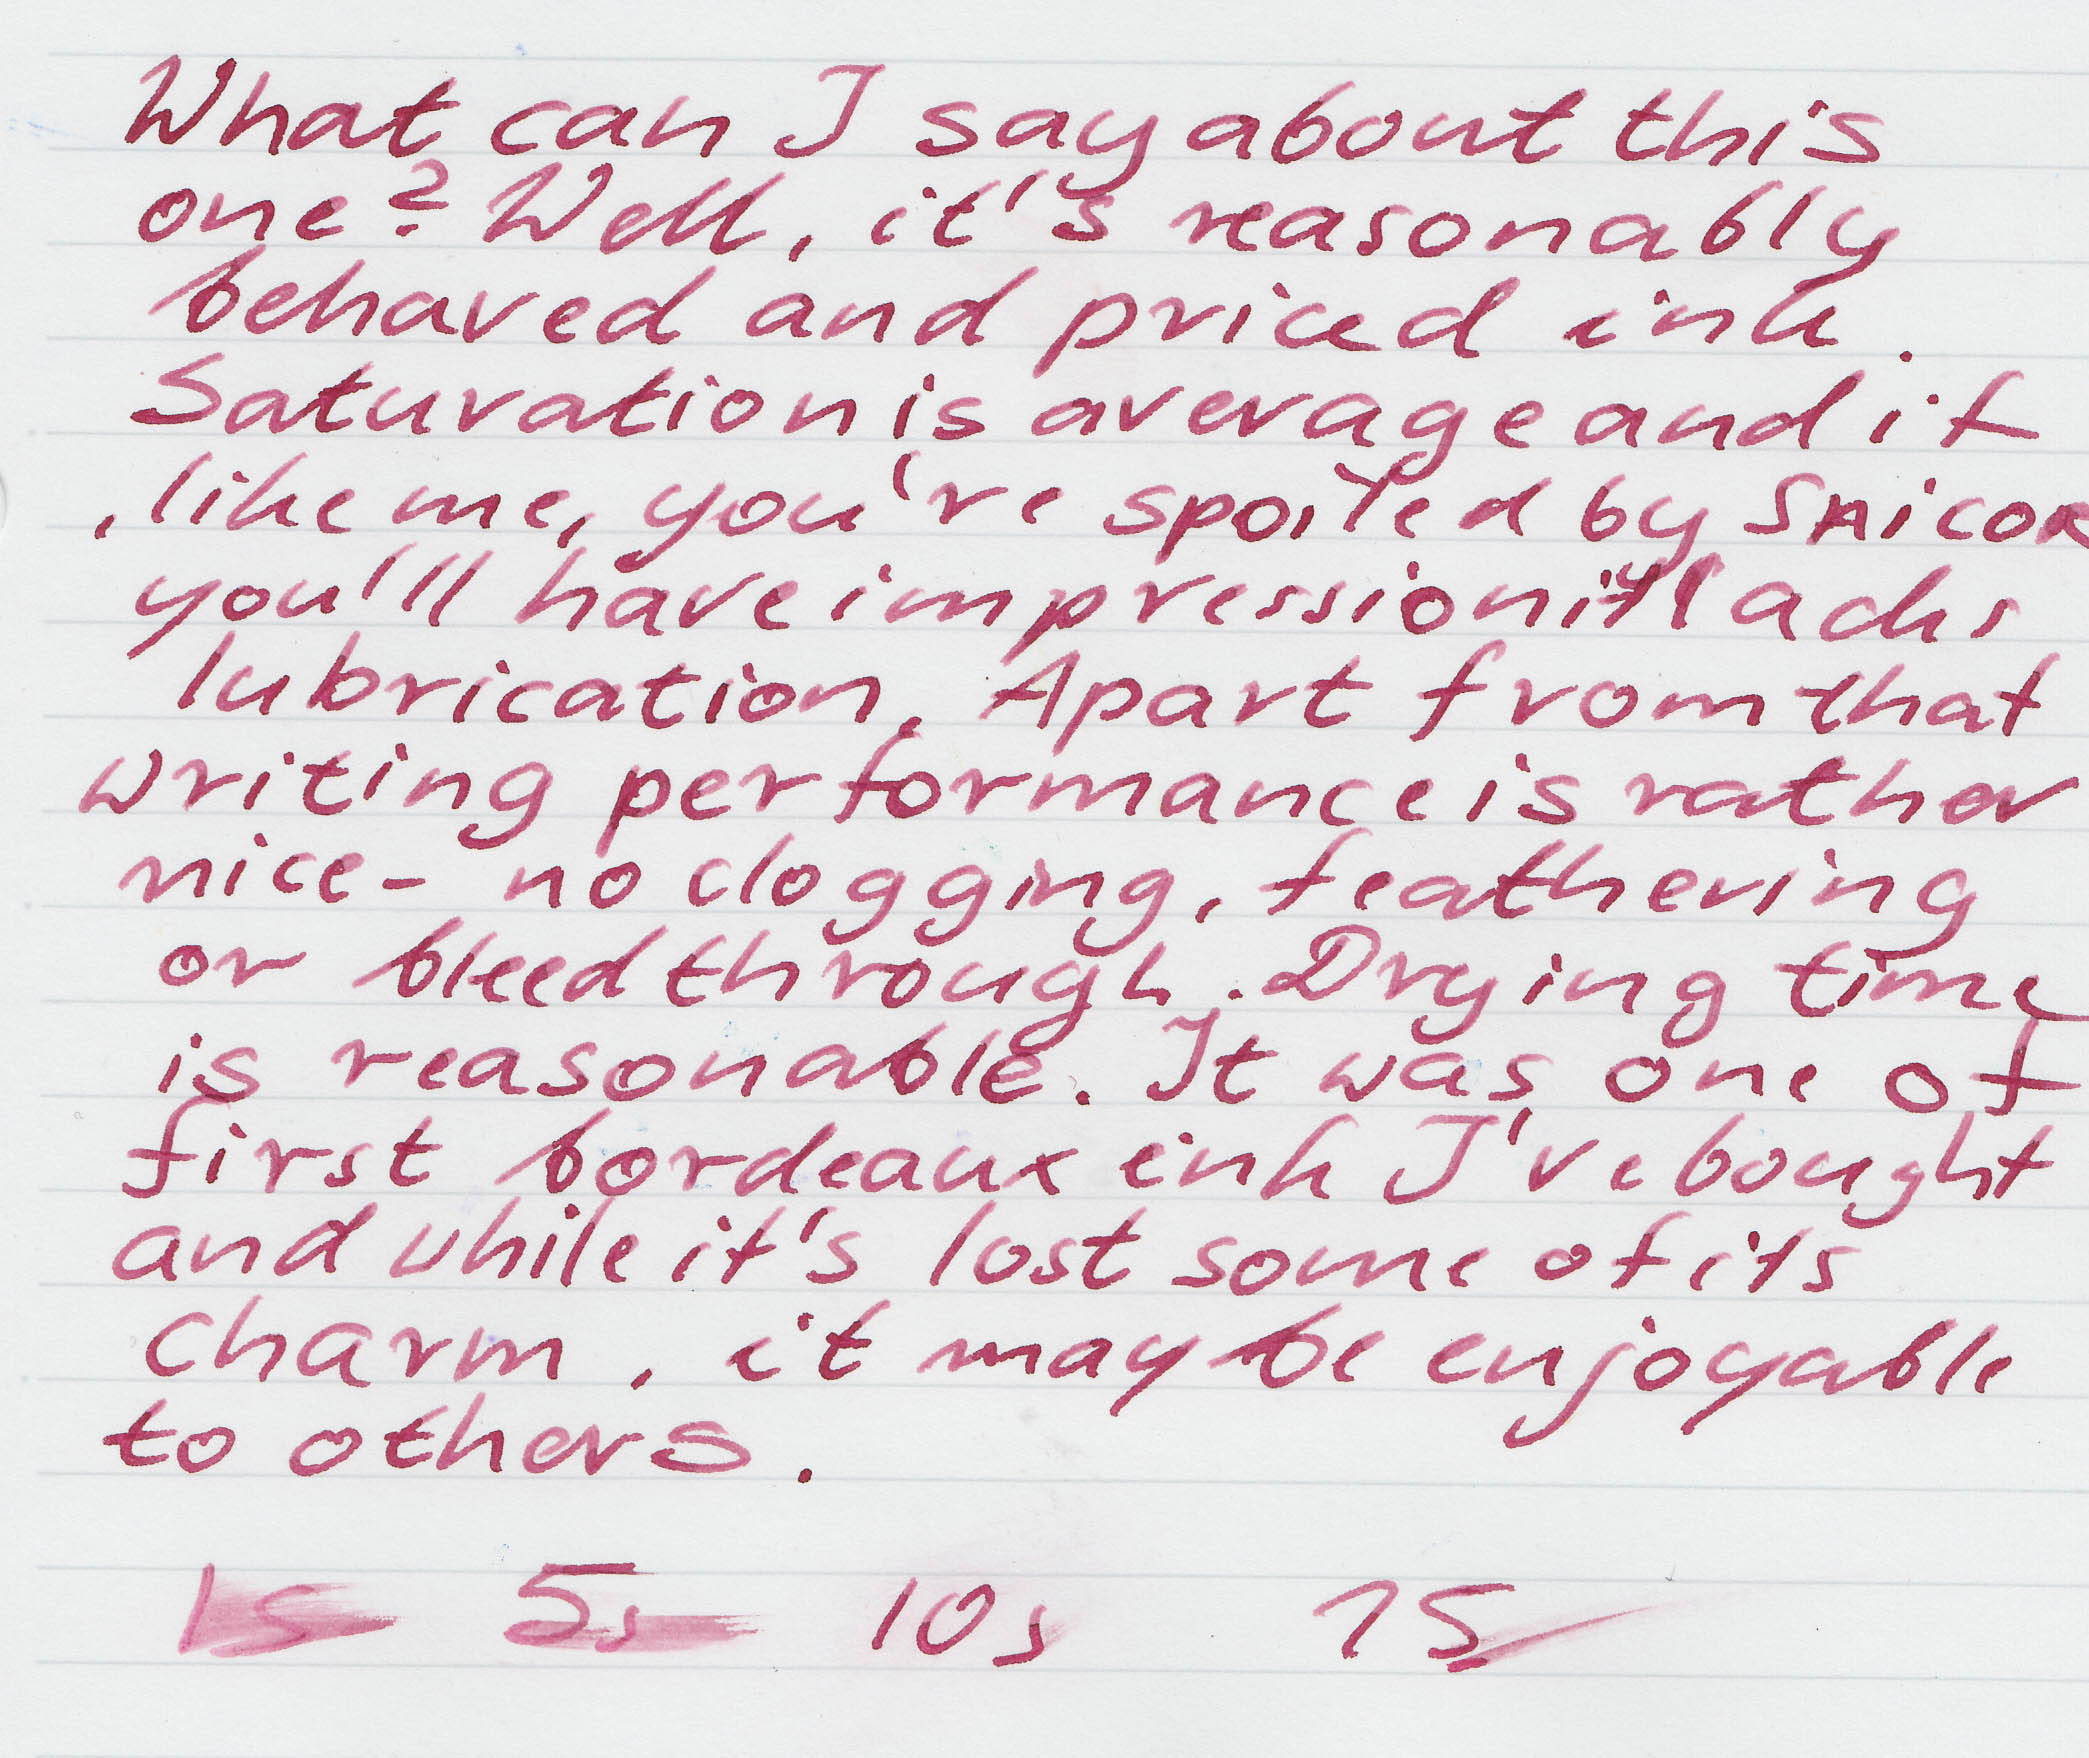 What can I say about this
one? Well, it's reasonably
behaved and priced ink.
Saturation is average and if
, like me, you're spoiled by
you'll have impression it lacks
lubrication. Apart from that
writing performance is rather
nice - no clogging, feathering
or bleedthrough. Drying time
is reasonable. It was one of
first bordeaux ink I've bought
and while it's lost some of its
charm, it may be enjoyable
to others.
1s 5s 10s 15